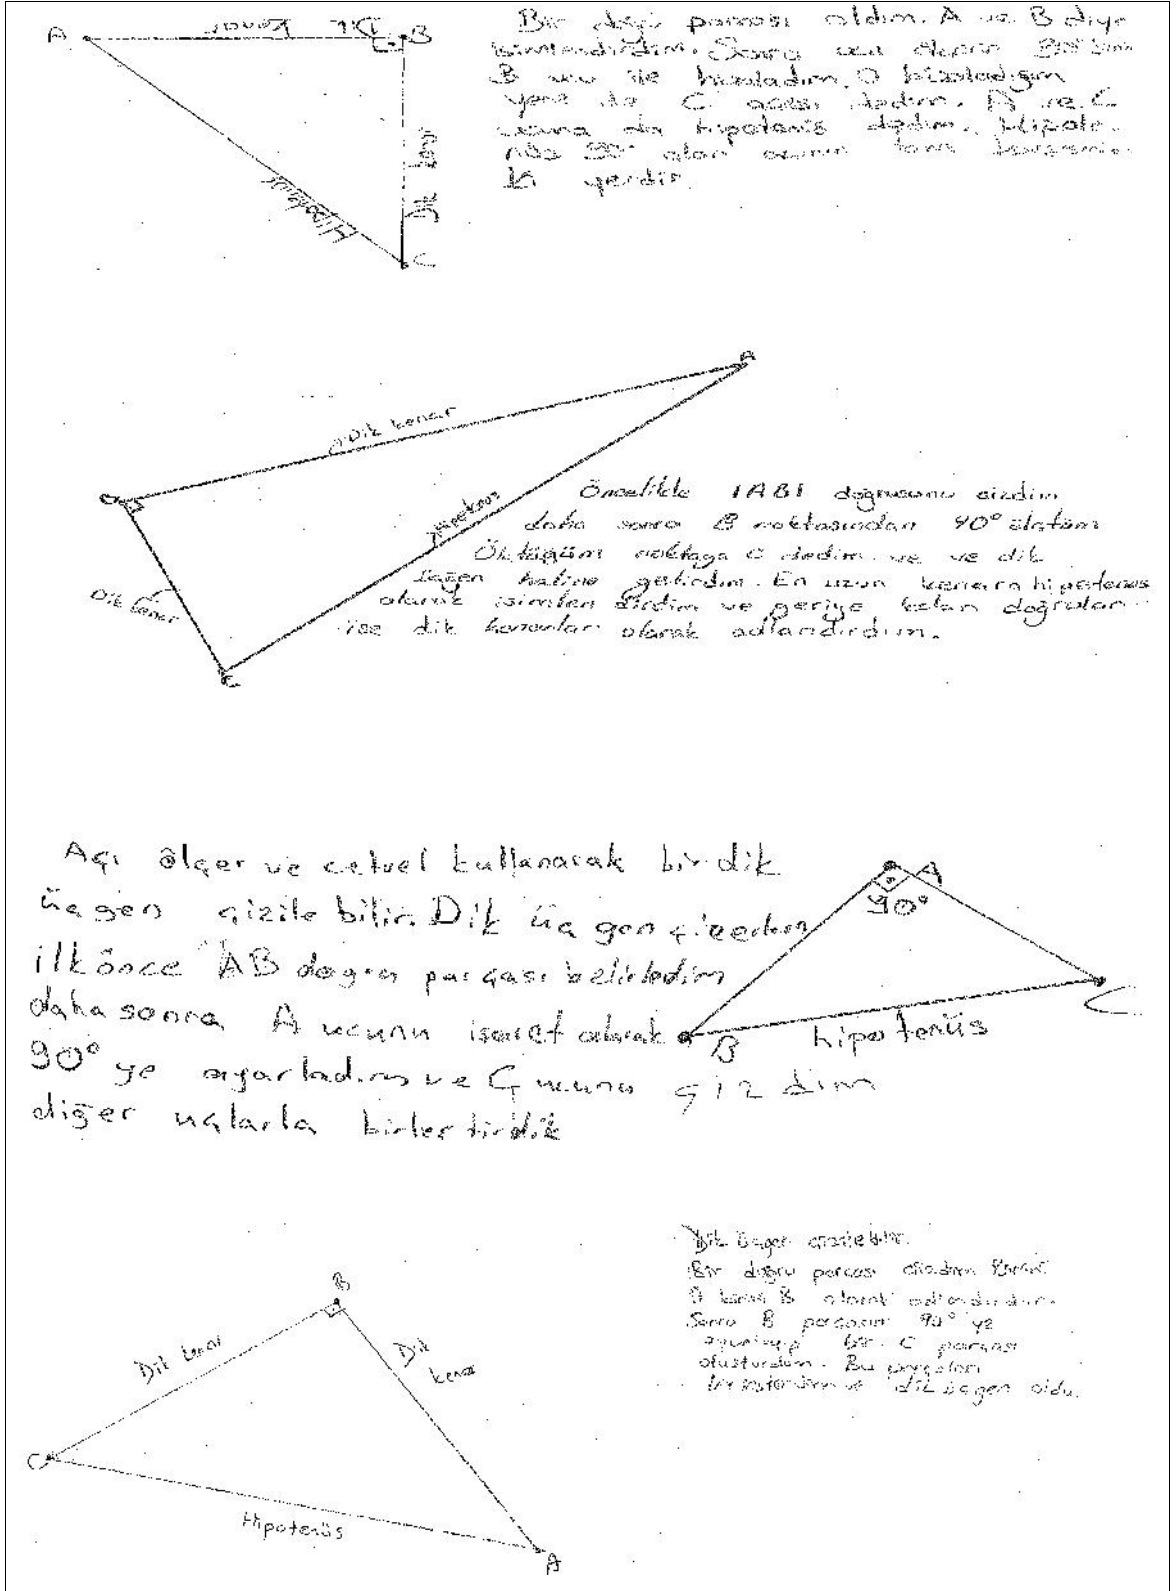 A
Dik kenar
B
Bir doğru parçası aldım. A ve B diye
isimlendirdim. Sonra
B ucu ile hizaladım. O hizaladığım
yere de C dedim. A ve C
ucuna da hipotenüs dedim.
90° olan açının tam
yerdir.
Dik kenar
Hipotenüs
C
A
Dik kenar
Öncelikle |AB| doğrusunu çizdim
daha sonra B noktasından 90° ölçtüm
Ölçtüğüm noktaya C dedim ve ve dik
haline getirdim. En uzun kenara hipotenüs
olarak isimlendirdim ve geriye kalan doğruları
ise dik kenarlar olarak adlandırdım.
Dik kenar
C
Açı ölçer ve cetvel kullanarak bir dik
üçgen çizile bilir. Dik üçgen çizerken
ilk önce AB doğru parçası belirledim
daha sonra A ucunu işaret alarak
90° ye ayarladım ve C ucunu çizdim
diğer uçlarla birleştirdik
A
90°
B
C
hipotenüs
Dik üçgen çizilebilir.
Bir doğru parçası çizdim
B olarak adlandırdım.
Sonra B parçasını 90° ye
ayarlayıp bir C parçası
oluşturdum. Bu parçaları
birleştirdim ve dik üçgen oldu.
B
Dik kenar
Dik
kenar
C
Hipotenüs
A